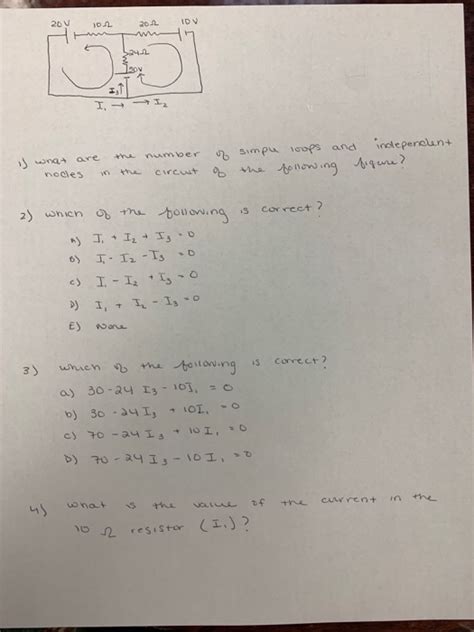 20V 10Ω 20Ω 10V
24Ω
50V
I₃↑
I₁ → → I₂
1) what are the number of simple loops and independent
nodes in the circuit of the following figure?
2) which of the following is correct?
A) I₁ + I₂ + I₃ = 0
B) I₁ - I₂ - I₃ = 0
C) I₁ - I₂ + I₃ = 0
D) I₁ + I₂ - I₃ = 0
E) None
3) which of the following is correct?
a) 30 - 24 I₃ - 10I₁ = 0
b) 30 - 24 I₃ + 10I₁ = 0
c) 70 - 24 I₃ + 10 I₁ = 0
D) 70 - 24 I₃ - 10 I₁ = 0
4) what is the value of the current in the
10 Ω resistor (I₁)?